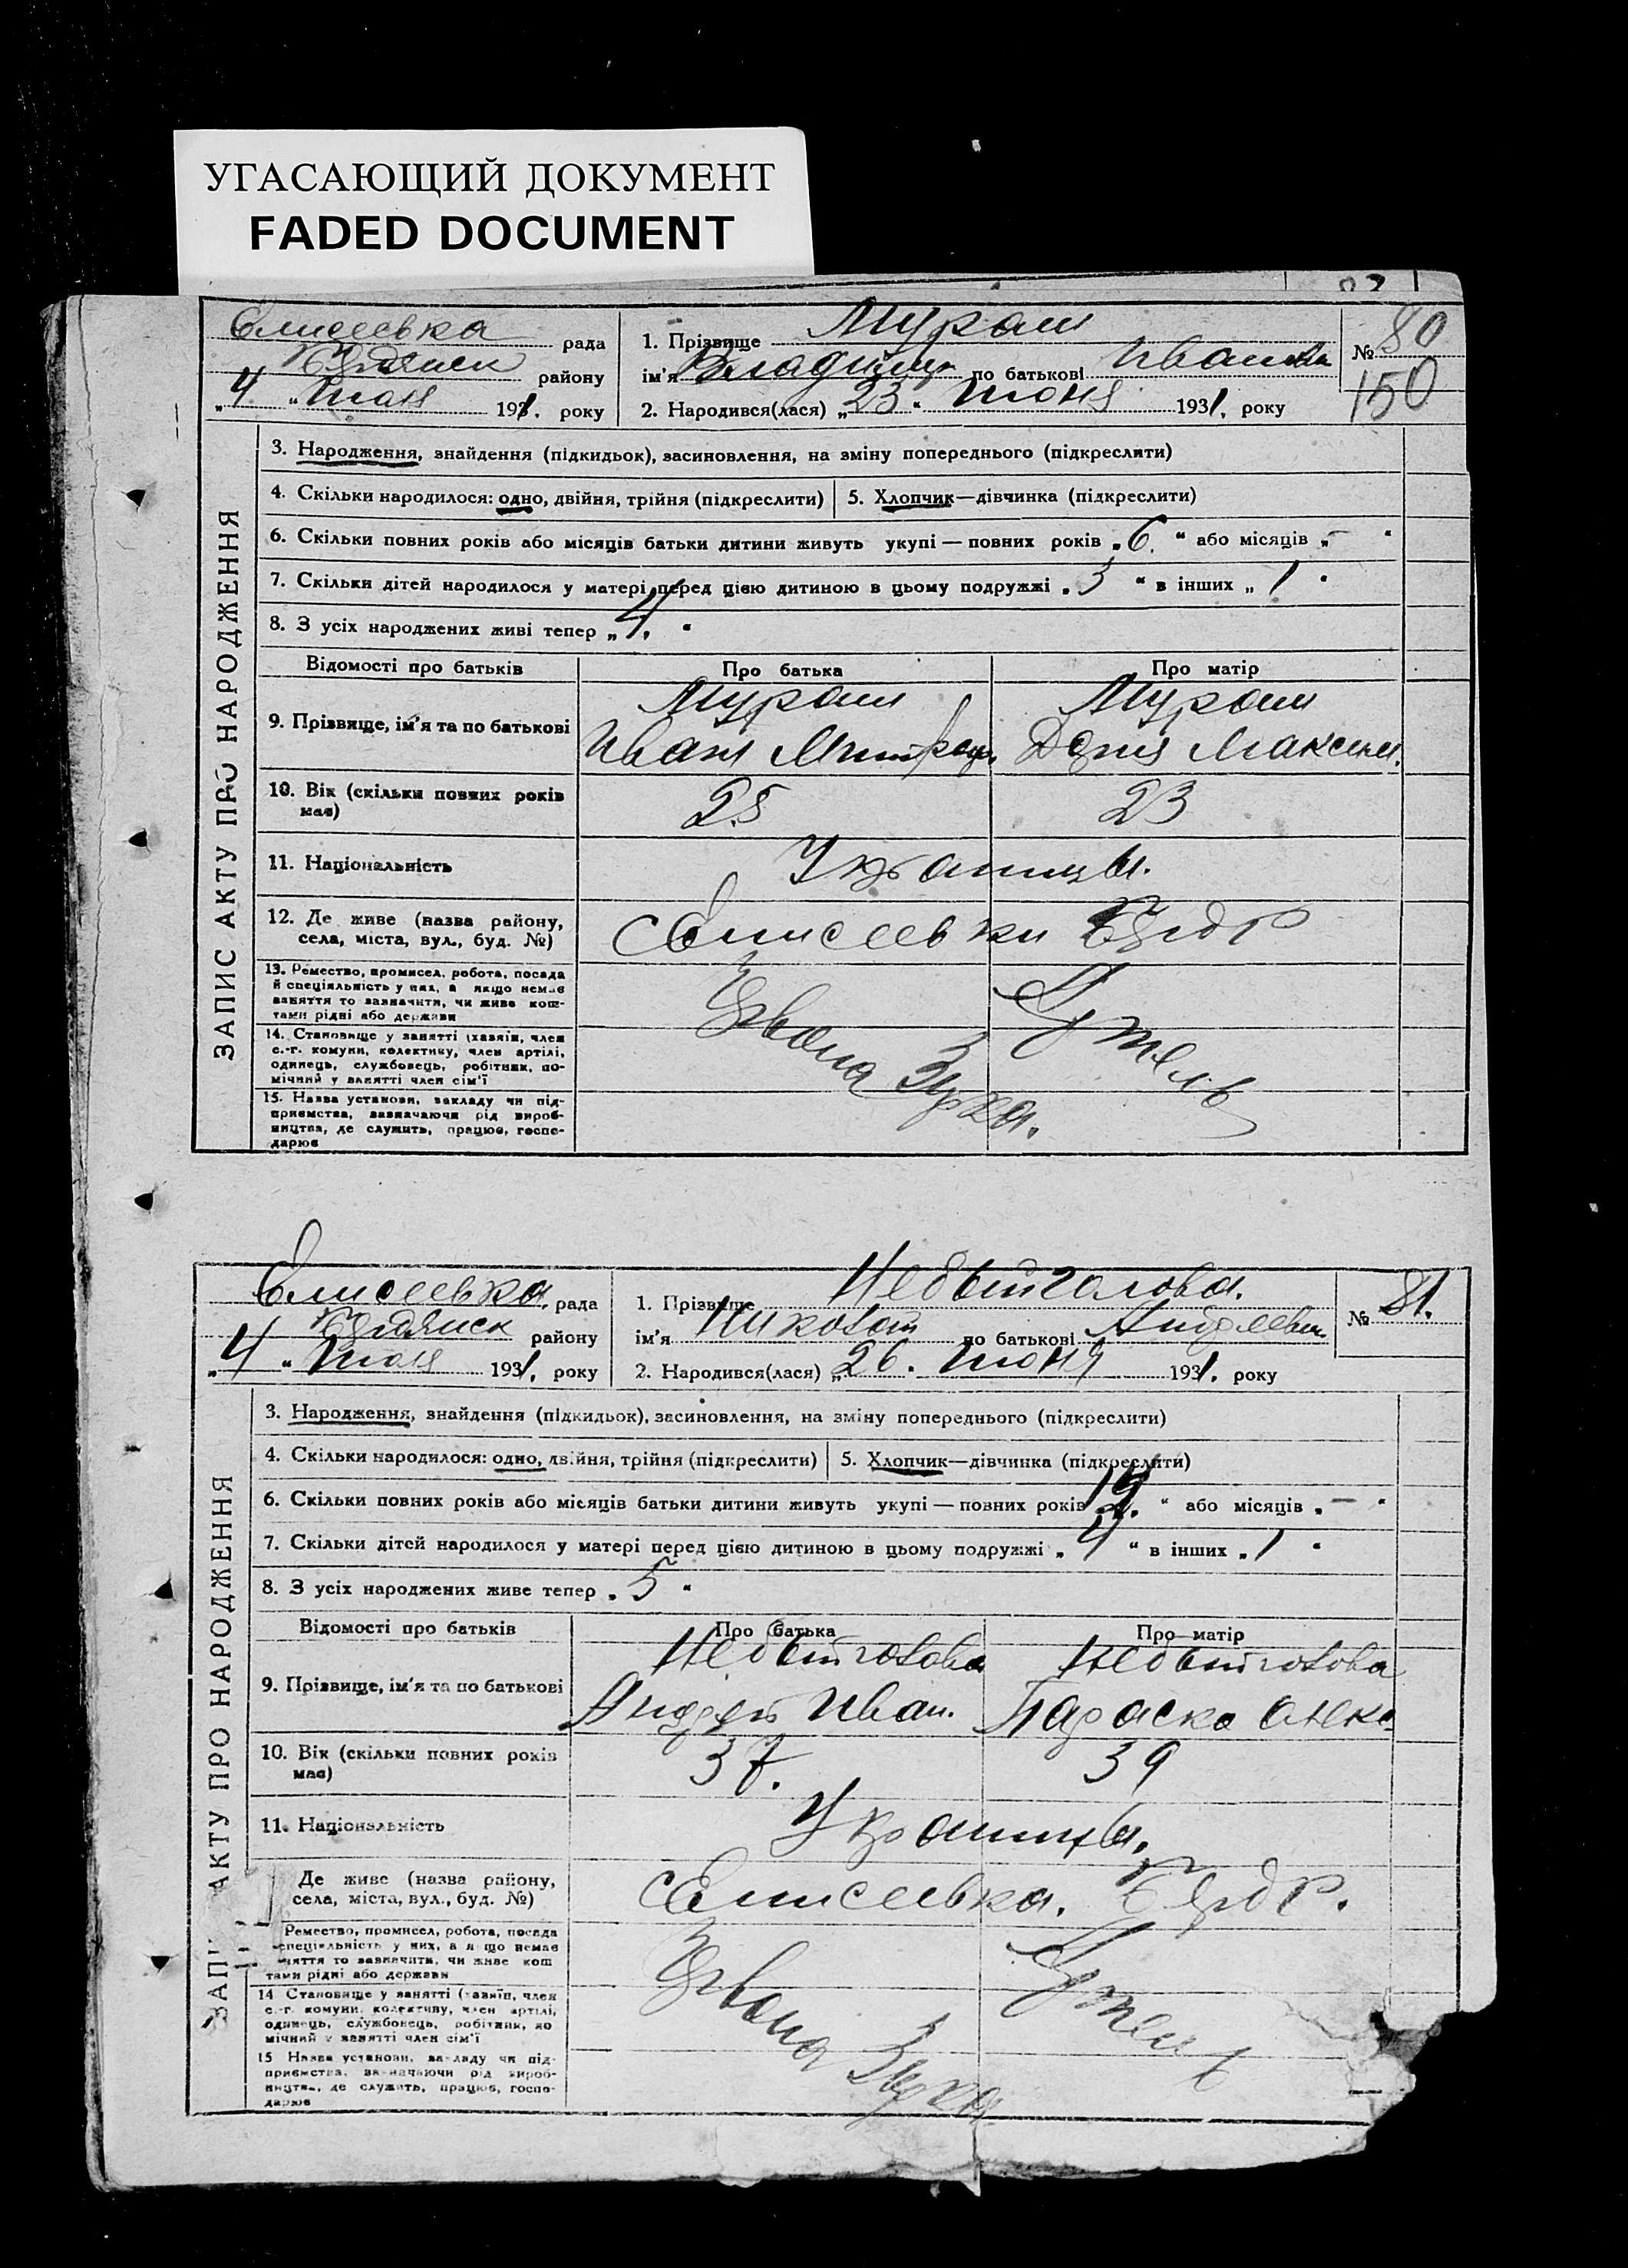 УГАСАЮЩИЙ ДОКУМЕНТ
FADED DOCUMENT
Елисеевка рада
району
„4“ 1931. року
1. Прізвище Мураш
ім'я Владимир по батькові
2. Народився(лася) „23“ Июня 1931. року
№ 80
150
ЗАПИС АКТУ ПРО НАРОДЖЕННЯ
3. Народження, знайдення (підкидьок), засиновлення, на зміну попереднього (підкреслити)
4. Скільки народилося: одно, двійня, трійня (підкреслити)
5. Хлопчик—дівчинка (підкреслити)
6. Скільки повних років або місяців батьки дитини живуть укупі — повних років „6.“ або місяців „–“
7. Скільки дітей народилося у матері перед цією дитиною в цьому подружжі „3“ в інших „1“
8. З усіх народжених живі тепер „4.“
Відомості про батьків
Про батька
Про матір
9. Прізвище, ім'я та по батькові
Мураш
Иван
Мураш
Максим.
10. Вік (скільки повних років має)
25
23
11. Національність
Украинцы.
12. Де живе (назва району,
села, міста, вул., буд. №)
13. Ремество, промисел, робота, посада
й спеціяльність у них, а якщо немає
заняття то зазначити, чи живе кош-
тами рідні або держави
14. Становище у занятті (хазяїн, член
с.-г. комуни, колективу, член артілі,
одинець, службовець, робітник, по-
мічний у занятті член сім'ї
15. Назва установи, закладу чи під-
приємства, зазначаючи рід вироб-
ництва, де служить, працює, госпо-
дарює
Елисеевка. рада
району
„4“ 1931. року
1. Прізвище Небытголова.
ім'я Николай по батькові
2. Народився(лася) „26. Июня 1931. року
№ 81.
АКТУ ПРО НАРОДЖЕННЯ
3. Народження, знайдення (підкидьок), засиновлення, на зміну попереднього (підкреслити)
4. Скільки народилося: одно, двійня, трійня (підкреслити)
5. Хлопчик—дівчинка (підкреслити)
6. Скільки повних років або місяців батьки дитини живуть укупі — повних років “ або місяців „–“
7. Скільки дітей народилося у матері перед цією дитиною в цьому подружжі „4“ в інших „1“
8. З усіх народжених живе тепер „5“
Відомості про батьків
Про батька
Про матір
9. Прізвище, ім'я та по батькові
Небытголова
Андрей Иван.
Небытголова
Параска
10. Вік (скільки повних років має)
37.
39
11. Національність
Украинцы.
Де живе (назва району,
села, міста, вул., буд. №)
Елисеевка.
Ремество, промисел, робота, посада
спеціяльність у них, а якщо немає
няття то зазначити, чи живе кош
тами рідні або держави
14 Становище у занятті (хазяїн, член
с.-г. комуни, колективу, член артілі,
одинець, службовець, робітник, по
мічний у занятті член сім'ї
15 Назва установи, закладу чи під-
приємства, зазначаючи рід вироб-
ництва, де служить, працює, госпо-
дарює